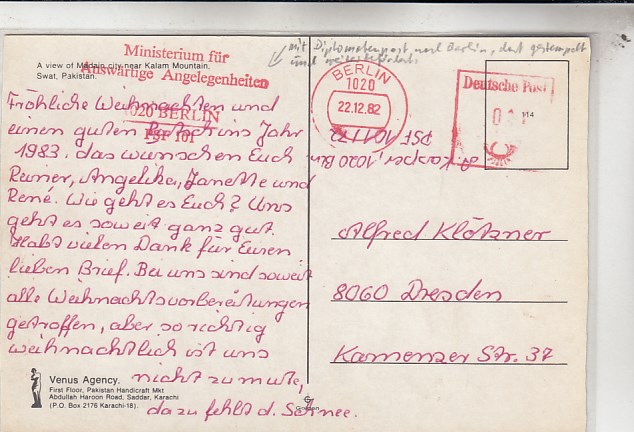 mit Diplomatenpost nach Berlin, dort gestempelt
und weiterbefördert
A view of Madain city near Kalam Mountain,
Swat, Pakistan.
Ministerium für
Auswärtige Angelegenheiten
1020 BERLIN
PSF 101
BERLIN
1020
22.12.82
Deutsche Post
114
Kasper, 1020 Bln
PSF 101/172
Fröhliche Weihnachten und
einen guten Rutsch ins Jahr
1983. das wünschen Euch
Rainer, Angelika, Janette und
René. Wie geht es Euch? Uns
geht es soweit ganz gut.
Habt vielen Dank für Euren
lieben Brief. Bei uns sind soweit
alle Weihnachtsvorbereitungen
getroffen, aber so richtig
weihnachtlich ist uns
nicht zumute,
dazu fehlt d. Schnee.
Alfred Klötzner
8060 Dresden
Kamenzer Str. 37
Venus Agency.
First Floor, Pakistan Handicraft Mkt
Abdullah Haroon Road, Saddar, Karachi
(P.O. Box 2176 Karachi-18).